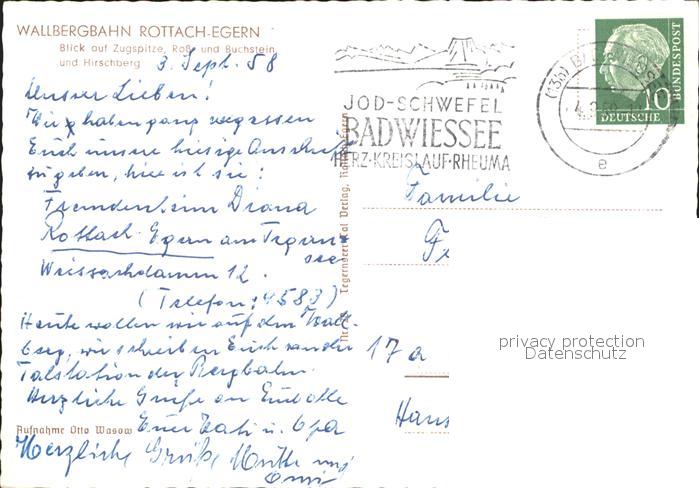 WALLBERGBAHN ROTTACH-EGERN
Blick auf Zugspitze, Roß- und Buchstein
und Hirschberg
3. Sept. 58
Unsere Lieben!
Wir haben ganz vergessen
Euch unsere hiesige Anschrift
zu geben, hier ist sie:
Fremdenheim Diana
Rottach-Egern am Tegern-
see
Weissachdamm 12.
(Telefon: 4583)
Heute wollen wir auf den Wall-
berg, wir schreiben Euch von der
Talstation der Bergbahn.
Herzliche Grüße an Euch alle
Euer Vati u. Opa
Aufnahme Otto Wasow
Herzliche Grüße Mutti und
Omi
Tegernseer Tal Verlag, Rottach-Egern
JOD-SCHWEFEL
BAD WIESSEE
HERZ·KREISLAUF·RHEUMA
(13b) BAD
e
10
DEUTSCHE
BUNDESPOST
Familie
17a
privacy protection
Datenschutz